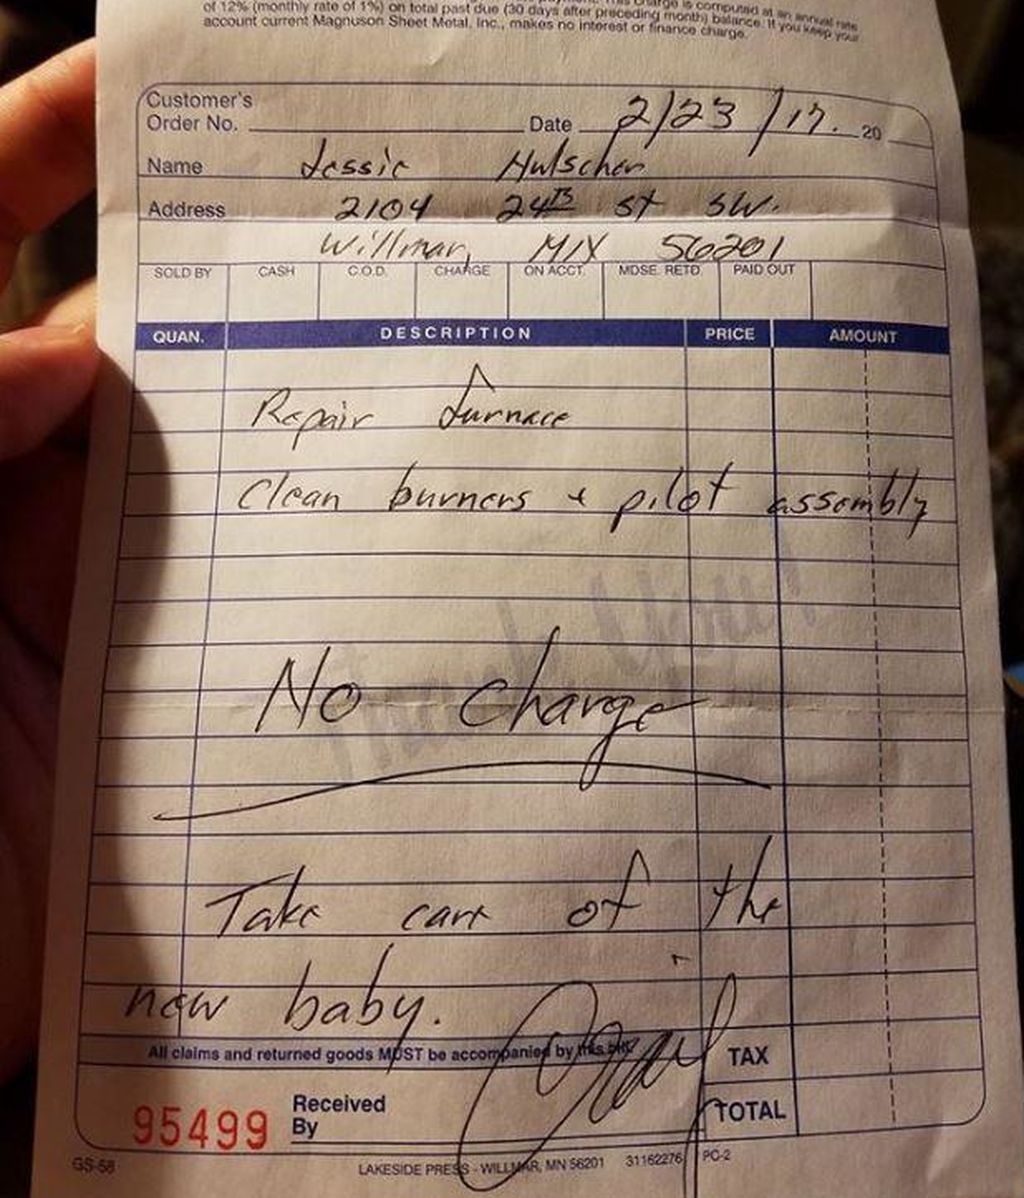 of 12% (monthly rate of 1%) on total past due (30 days after preceding month) balance. If you keep your
account current Magnuson Sheet Metal, Inc., makes no interest or finance charge.
Customer's
Order No. Date 2/23/17. 20
Name Jessie Hulscher
Address 2104 24th St SW.
Willmar, MN 56201
SOLD BY CASH C.O.D. CHARGE ON ACCT. MDSE. RETD. PAID OUT
QUAN. DESCRIPTION PRICE AMOUNT
Repair furnace
Clean burners + pilot assembly
Thank You!
No charge
Take care of the
new baby.
All claims and returned goods MUST be accompanied by this bill.
TAX
95499 Received
By
TOTAL
GS-58 LAKESIDE PRESS - WILLMAR, MN 56201 31162276 PC-2